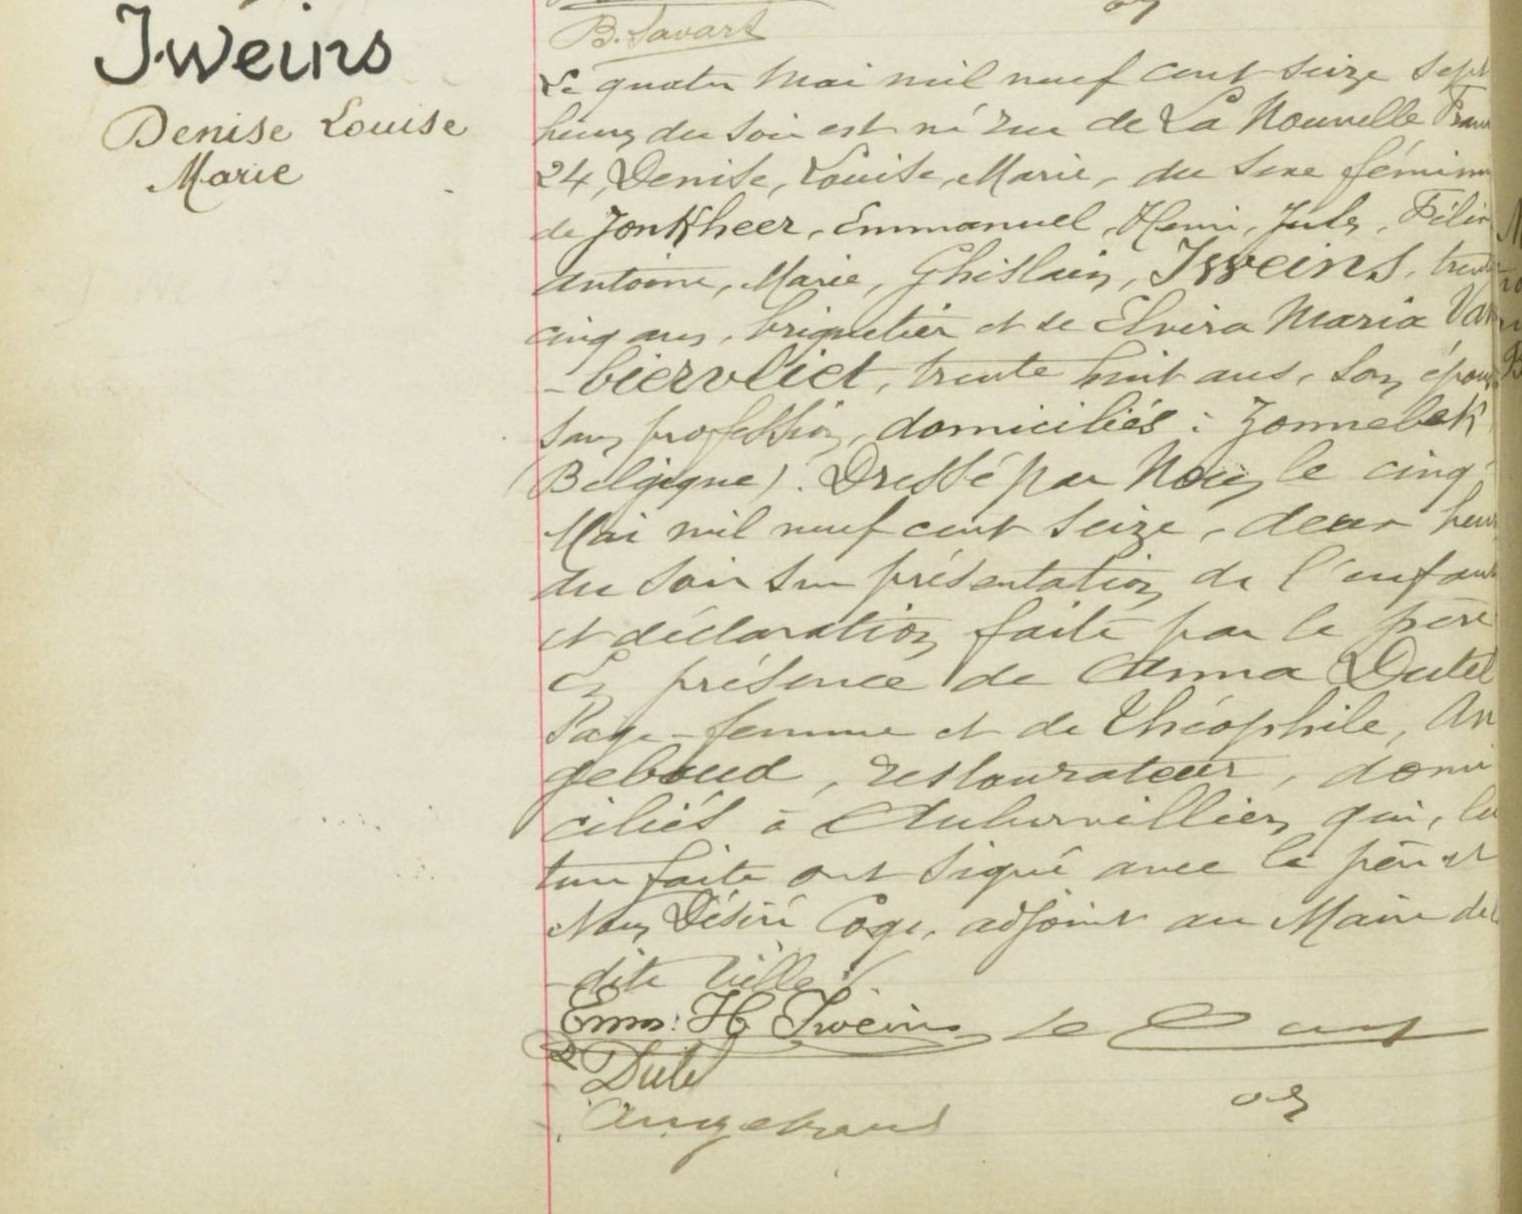 Iweins
Denise Louise
Marie
B. Savart
Le quatre Mai mil neuf cent seize sept
heures du soir est né rue de La Nouvelle Fran
24, Denise, Louise, Marie, du sexe féminin
de JonKheer, Emmanuel, Henri, Jules, Félix
Antoine, Marie, Ghislain, Iweins, trente
cinq ans, briquetier et de Elvira Maria Van
-biervliet, trente huit ans, son épouse
sans profession, domiciliés à Zonnebek
(Belgique). Dressé par Nous le cinq
Mai mil neuf cent seize, deux heures
du soir sur présentation de l'enfant
et déclaration faite par le père
En présence de Anna Dutel
Sage-femme et de Théophile, An
gebaud, restaurateur, domi
ciliés à Aubervilliers qui, lec
ture faite ont signé avec le père et
Nous Désiré Coge, adjoint au Maire de
dite Ville
Emm: H Iweins
Dutel
Angebaud